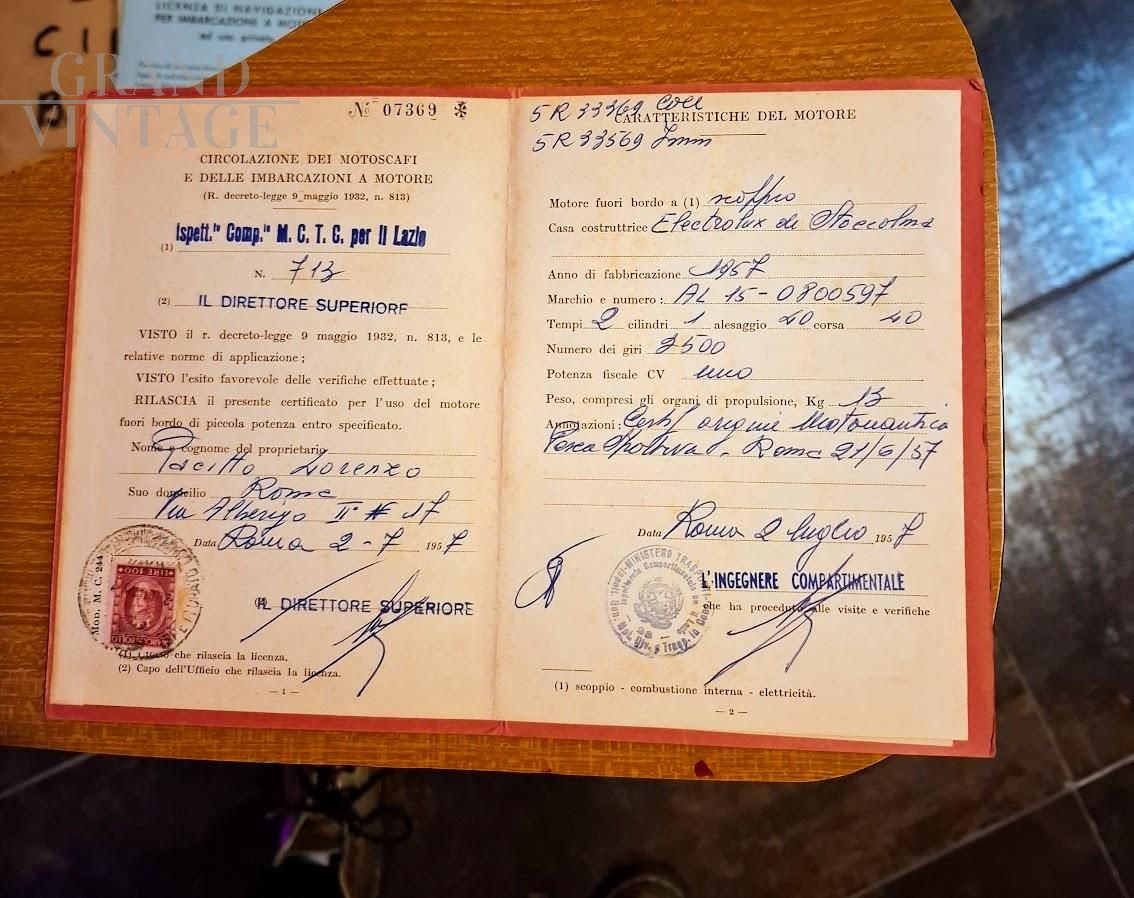 LICENZA DI NAVIGAZIONE
PER IMBARCAZIONE A MOTO
ad uso privato
GRAND
VINTAGE
Nº 07369
CIRCOLAZIONE DEI MOTOSCAFI
E DELLE IMBARCAZIONI A MOTORE
(R. decreto-legge 9 maggio 1932, n. 813)
(1) Ispett.to Comp.le M. C. T. C. per il Lazio
N. 713
(2) IL DIRETTORE SUPERIORE
VISTO il r. decreto-legge 9 maggio 1932, n. 813, e le
relative norme di applicazione;
VISTO l'esito favorevole delle verifiche effettuate;
RILASCIA il presente certificato per l'uso del motore
fuori bordo di piccola potenza entro specificato.
Nome e cognome del proprietario
Pacitto Lorenzo
Suo domicilio Roma
Via Alberigo II # 17
Data Roma 2-7 1957
IL DIRETTORE SUPERIORE
Mod. M. C. 244
LIRE 100
(1) Ufficio che rilascia la licenza.
(2) Capo dell'Ufficio che rilascia la licenza.
— 1 —
5R 33369 Coll
5R 33569 Imm
CARATTERISTICHE DEL MOTORE
Motore fuori bordo a (1) scoppio
Casa costruttrice Electrolux de Stoccolma
Anno di fabbricazione 1957
Marchio e numero: AL 15-0800597
Tempi 2 cilindri 1 alesaggio 40 corsa 40
Numero dei giri 3500
Potenza fiscale CV uno
Peso, compresi gli organi di propulsione, Kg 13
Annotazioni: Cert/ origine Motonautica
Pesca Sportiva - Roma 21/6/57
Data Roma 2 luglio 1957
L'INGEGNERE COMPARTIMENTALE
che ha proceduto alle visite e verifiche
(1) scoppio - combustione interna - elettricità.
— 2 —